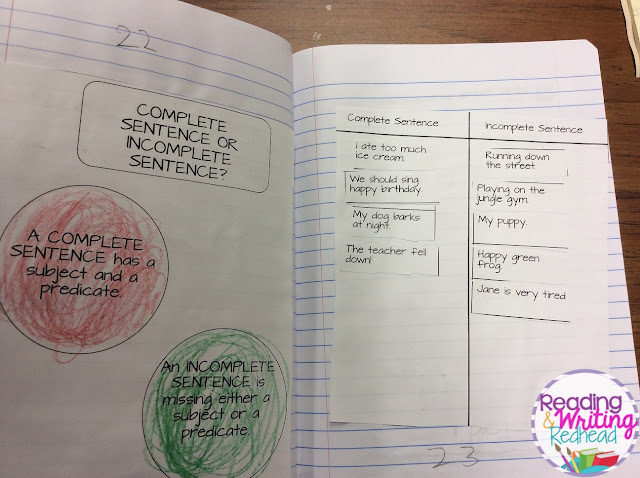 22
COMPLETE
SENTENCE OR
INCOMPLETE
SENTENCE?
A COMPLETE
SENTENCE has a
subject and a
predicate.
An INCOMPLETE
SENTENCE is
missing either a
subject or a
predicate.
Complete Sentence
I ate too much
ice cream.
We should sing
happy birthday.
My dog barks
at night.
The teacher fell
down!
Incomplete Sentence
Running down
the street.
Playing on the
jungle gym.
My puppy.
Happy green
frog.
Jane is very tired
23
Reading
&Writing
Redhead